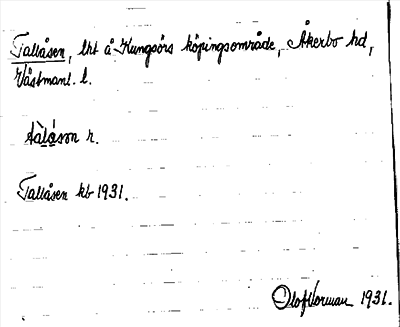 Tallåsen, lht å Kungsörs köpingsområde, Åkerbo hd,
Västmanl. l.
r.
Tallåsen kb 1931.
Olof Norman 1931.